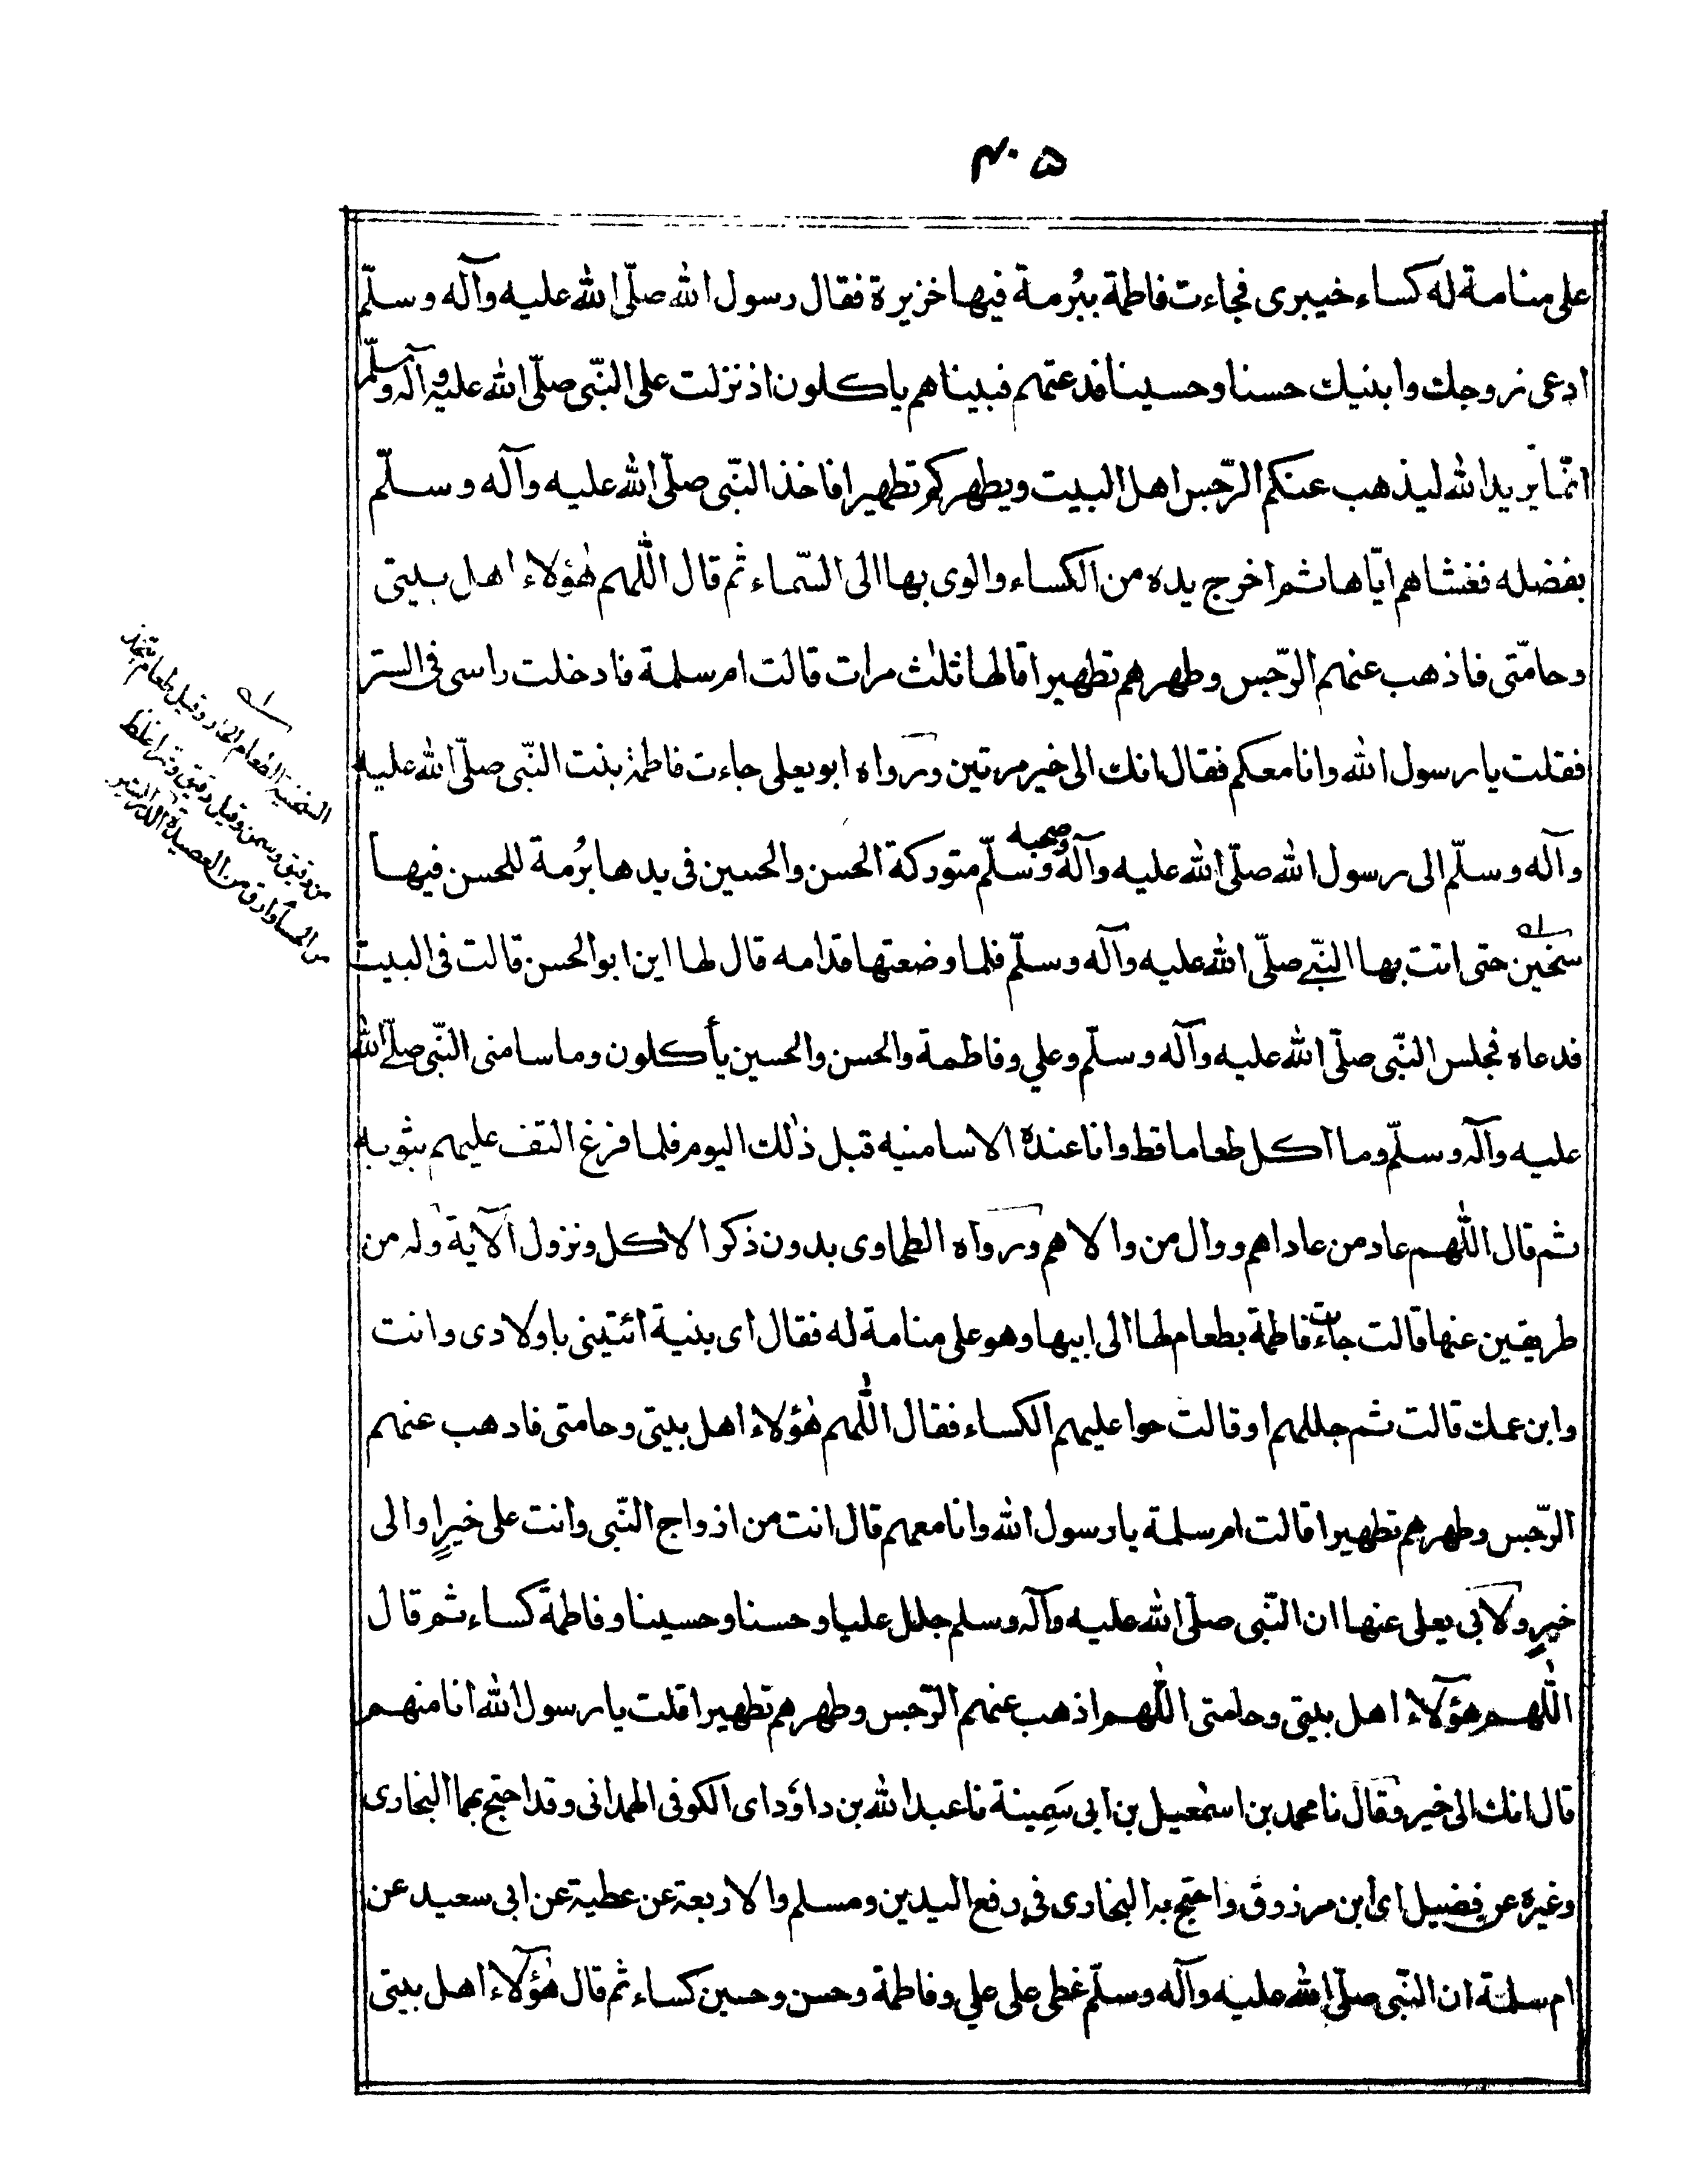 ۴۰۵
على منامة له كساء خيبرى فجاءت فاطمة ببُرمة فيها خزيرة فقال رسول الله صلّى الله عليه وآله وسلّم
ادعى زوجك وابنيك حسنا وحسينا فدعتهم فبيناهم ياكلون اذ نزلت على النّبى صلّى الله عليه وآله وسلّم
انّما يريد الله ليذهب عنكم الرّجس اهل البيت ويطهركم تطهيرا فاخذ النّبى صلّى الله عليه وآله وسلّم
بفضله فغشاهم ايّاها ثم اخرج يده من الكساء والوى بها الى السّماء ثم قال اللّٰهم هٰؤلاء اهل بيتى
وحامّتى فاذهب عنهم الرّجس وطهرهم تطهيرا قالها ثلٰث مرات قالت ام سلمة فادخلت راسى فى الستر
فقلت يا رسول الله وانا معكم فقال انك الى خير مرتين ورواه ابو يعلى جاءت فاطمة بنت النّبى صلّى الله عليه
وآله وسلّم الى رسول الله صلّى الله عليه وآله وصحبه وسلّم متوركة الحسن والحسين فى يدها بُرمة للحسن فيها
سخين حتى اتت بها النّبي صلّى الله عليه وآله وسلّم فلما وضعتها قدامه قال لها اين ابو الحسن قالت فى البيت
فدعاه فجلس النّبى صلّى الله عليه وآله وسلّم وعلي وفاطمة والحسن والحسين يأكلون وما سامنى النّبى صلّى الله
عليه وآله وسلّم وما اكل طعاما قط وانا عنده الا سامنيه قبل ذٰلك اليوم فلما فرغ التف عليهم بثوبه
ثم قال اللّٰهم عاد من عاداهم ووال من والاهم ورواه الطحاوى بدون ذكر الاكل ونزول الآية وله من
طريقين عنها قالت جاءت فاطمة بطعام لها الى ابيها وهو على منامة له فقال اى بنية ائتينى باولادى وانت
وابن عمك قالت ثم جللهم او قالت حوا عليهم الكساء فقال اللّٰهم هٰؤلاء اهل بيتى وحامتى فاذهب عنهم
الرّجس وطهرهم تطهيرا قالت ام سلمة يا رسول الله وانا معهم قال انت من ازواج النّبى وانت على خيرٍ او الى
خيرٍ ولابى يعلى عنها ان النّبى صلّى الله عليه وآله وسلم جلل عليا وحسنا وحسينا وفاطمة كساء ثم قال
اللّٰهم هٰؤلاء اهل بيتى وحامتى اللّٰهم اذهب عنهم الرّجس وطهرهم تطهيرا قلت يا رسول الله انا منهم
قال انك الى خير وقال نا محمد بن اسمٰعيل بن ابى سَمِينة نا عبد الله بن داؤد اى الكوفى الهمدانى وقد احتج بهما البخارى
وغيره عن فضيل اى ابن مرزوق واحتج به البخارى في رفع اليدين ومسلم والاربعة عن عطية عن ابى سعيد عن
ام سلمة ان النّبى صلّى الله عليه وآله وسلّم غطى على علي وفاطمة وحسن وحسين كساء ثم قال هٰؤلاء اهل بيتى
السخينة الطعام الحار وقيل طعام يتخذ
من دقيق وسمن وقيل دقيق وتمر اغلظ
من الحساء وارق من العصيدة